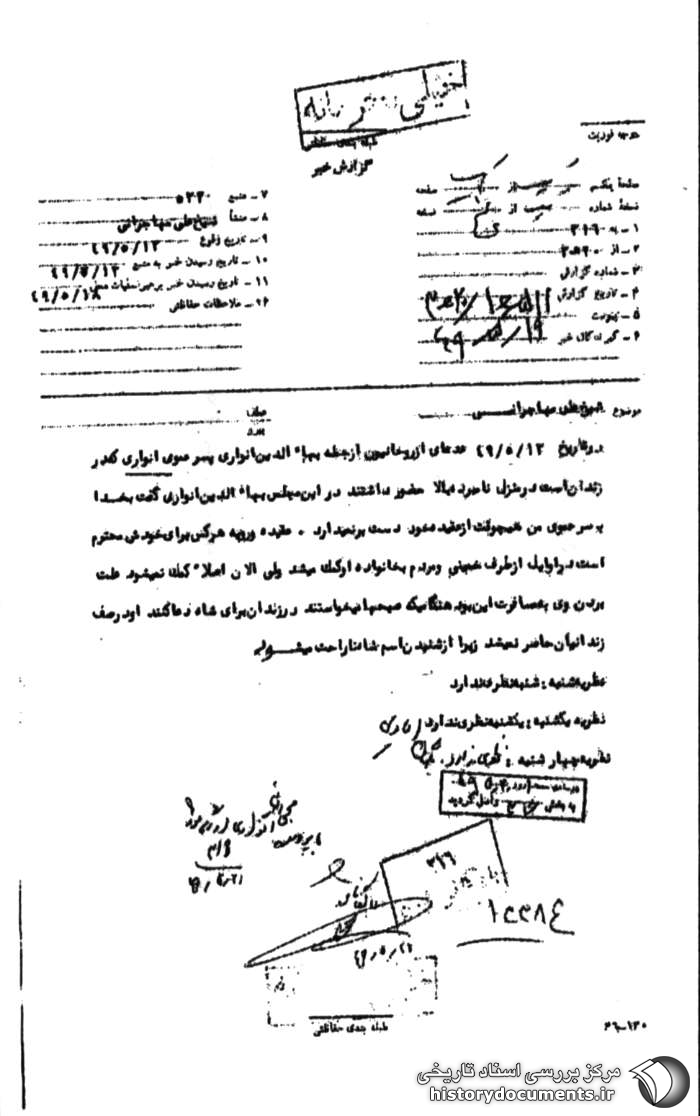 خیلی محرمانه
طبقه بندی حفاظتی
گزارش خبر
درجه فوریت
صفحه یکم از صفحه
نسخه شماره از نسخه
۱ – به ۳۱۶
۲ – از
۳ – شماره گزارش
۴ – تاریخ گزارش
۵ – پیوست ۴۹/۵/۱۹
۶ – گیرندگان خبر
۷ – منبع ۵۲۲۰
۸ – منشأ شیخ علی مهاجرانی
۹ – تاریخ وقوع ۴۹/۵/۱۲
۱۰ – تاریخ رسیدن خبر به منبع ۴۹/۵/۱۲
۱۱ – تاریخ رسیدن خبر به رهبر عملیات محل ۴۹/۵/۱۸
۲۶ – ملاحظات حفاظتی
موضوع شیخ علی مهاجرانی
عطف
پیرو
در تاریخ ۴۹/۵/۱۲ عده‌ای از روحانیون از جمله بهاء الدین انواری پسر عموی انواری که در
زندان است در منزل نامبرده بالا حضور داشتند در این مجلس بهاء الدین انواری گفت بخدا
پسر عموی من هیچوقت از عقیده خود دست بر نمیدارد . عقیده و رویه هر کس برای خودش محترم
است در اوایل از طرف خمینی و مردم بخانواده او کمک میشد ولی الان اصلا کمک نمیشود علت
بردن وی به مسافرت این بود هنگامیکه صبحها میخواستند در زندان برای شاه دعا کنند او در صف
زندانیان حاضر نمیشد زیرا از شنیدن اسم شاه ناراحت میشود
نظریه شنبه : شنبه نظری ندارد
نظریه یکشنبه : یکشنبه نظری ندارد
نظریه چهارشنبه : نظری ندارد.
به بخش واصل گردید
۳۱۶
۴۹/۵/۲۱
۱۲۳۸۴
طبقه بندی حفاظتی
۶۶–۱۳۰
مرکز بررسی اسناد تاریخی
historydocuments.ir